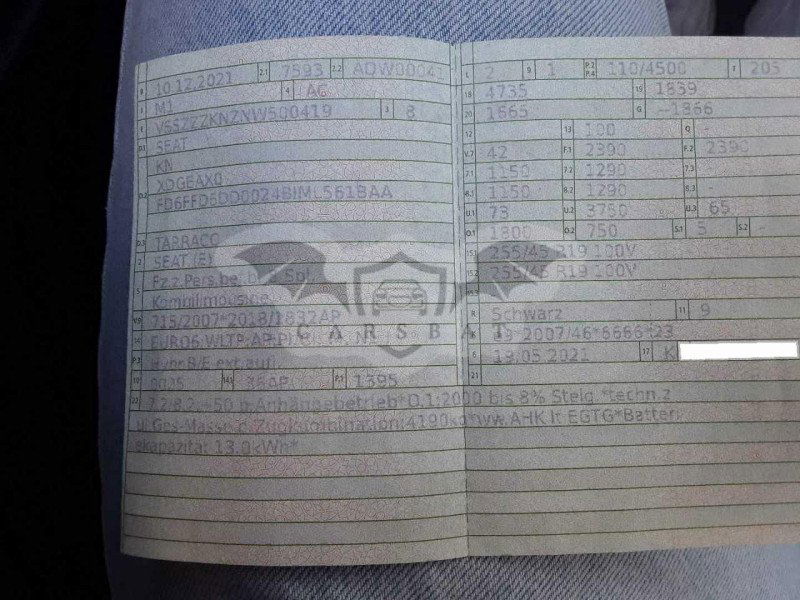 B 10.12.2021 2.1 7593 2.2
4 AG
J M1
E VSSZZZKNZNW500419 3 8
D.1 SEAT
KN
D.2 XDGEAX0
D.3 TARRACO
2 SEAT (E)
5 Fz.z.Pers.bef.b.
Kombilimousine
V.9 715/2007*2018/1832AP
14 EURO6
P.3
10 0025 14.1 36AP P.1 1395
L 2 9 1 P.2 P.4 110/4500 T 205
18 4735 19 1839
20 1665 G
12 13 100 Q -
V.7 42 F.1 2390 F.2 2390
7.1 1150 7.2 1290 7.3 -
8.1 1150 8.2 1290 8.3 -
U.1 73 U.2 3750 U.3 65
O.1 1800 O.2 750 S.1 5 S.2 -
15.1 255/45 R19 100V
15.2 255/45 R19 100V
R Schwarz 11 9
K *2007/46*6666*23
6 18.05.2021 17 K
21
CARSBAT
22 Anhängebetrieb*O.1:2000 bis 8% Steig.*techn.z
ul.Ges-Masse d.Zugkombination:4190kg*ww.AHK lt.EGTG*Batteri
ekapazität